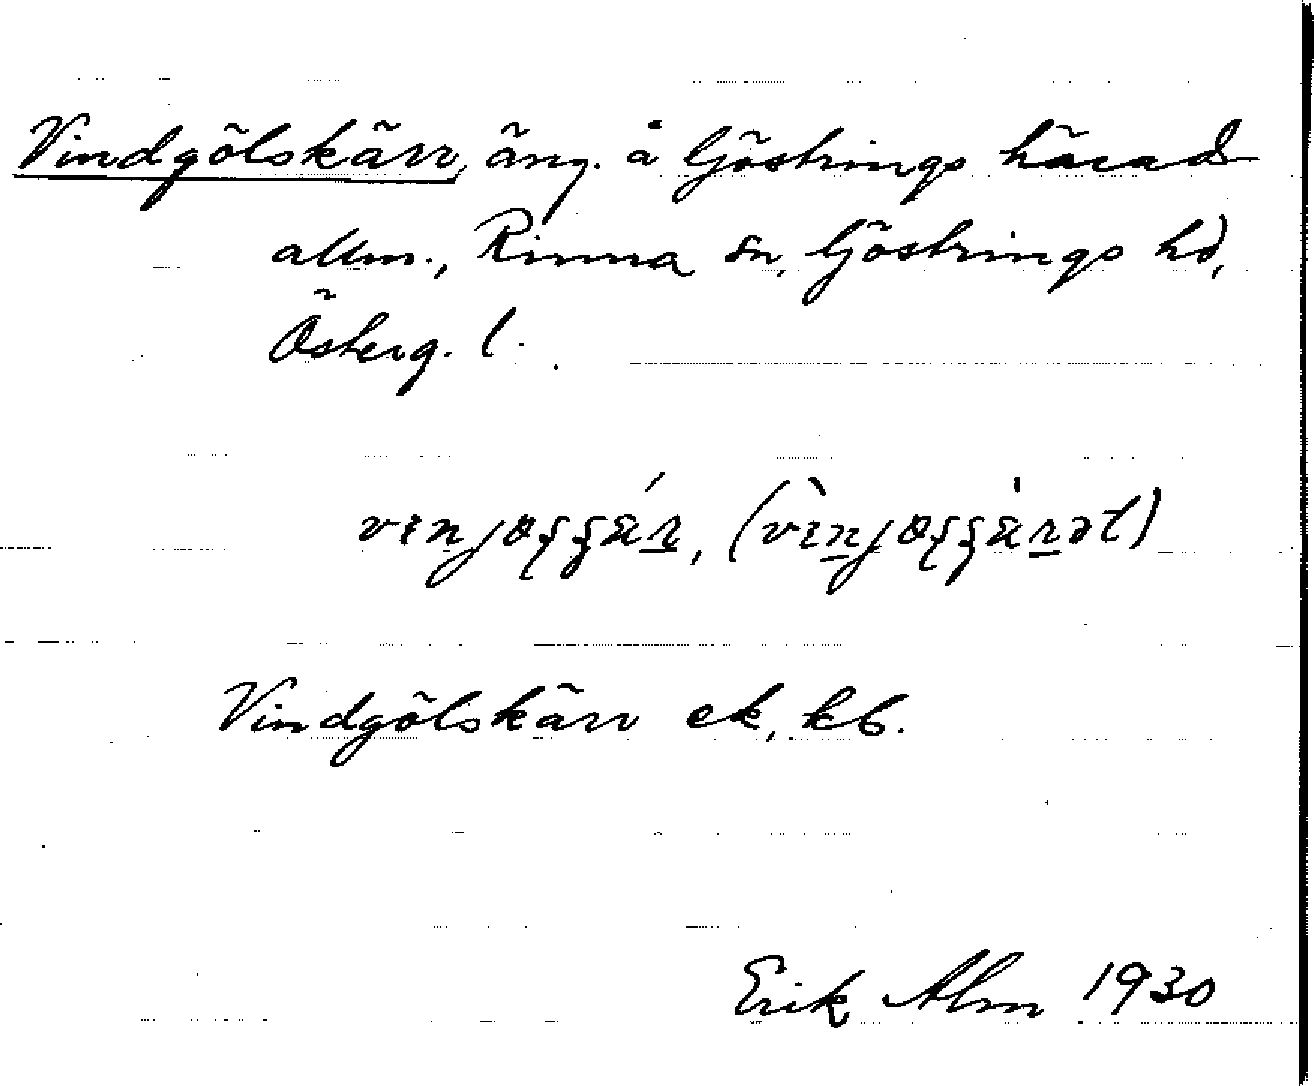 Vindgölskärr, äng. å Göstrings härad
allm., Rinna sn, Göstrings hd,
Österg. l.
Vindgölskärr ek, kb.
Erik Alm 1930